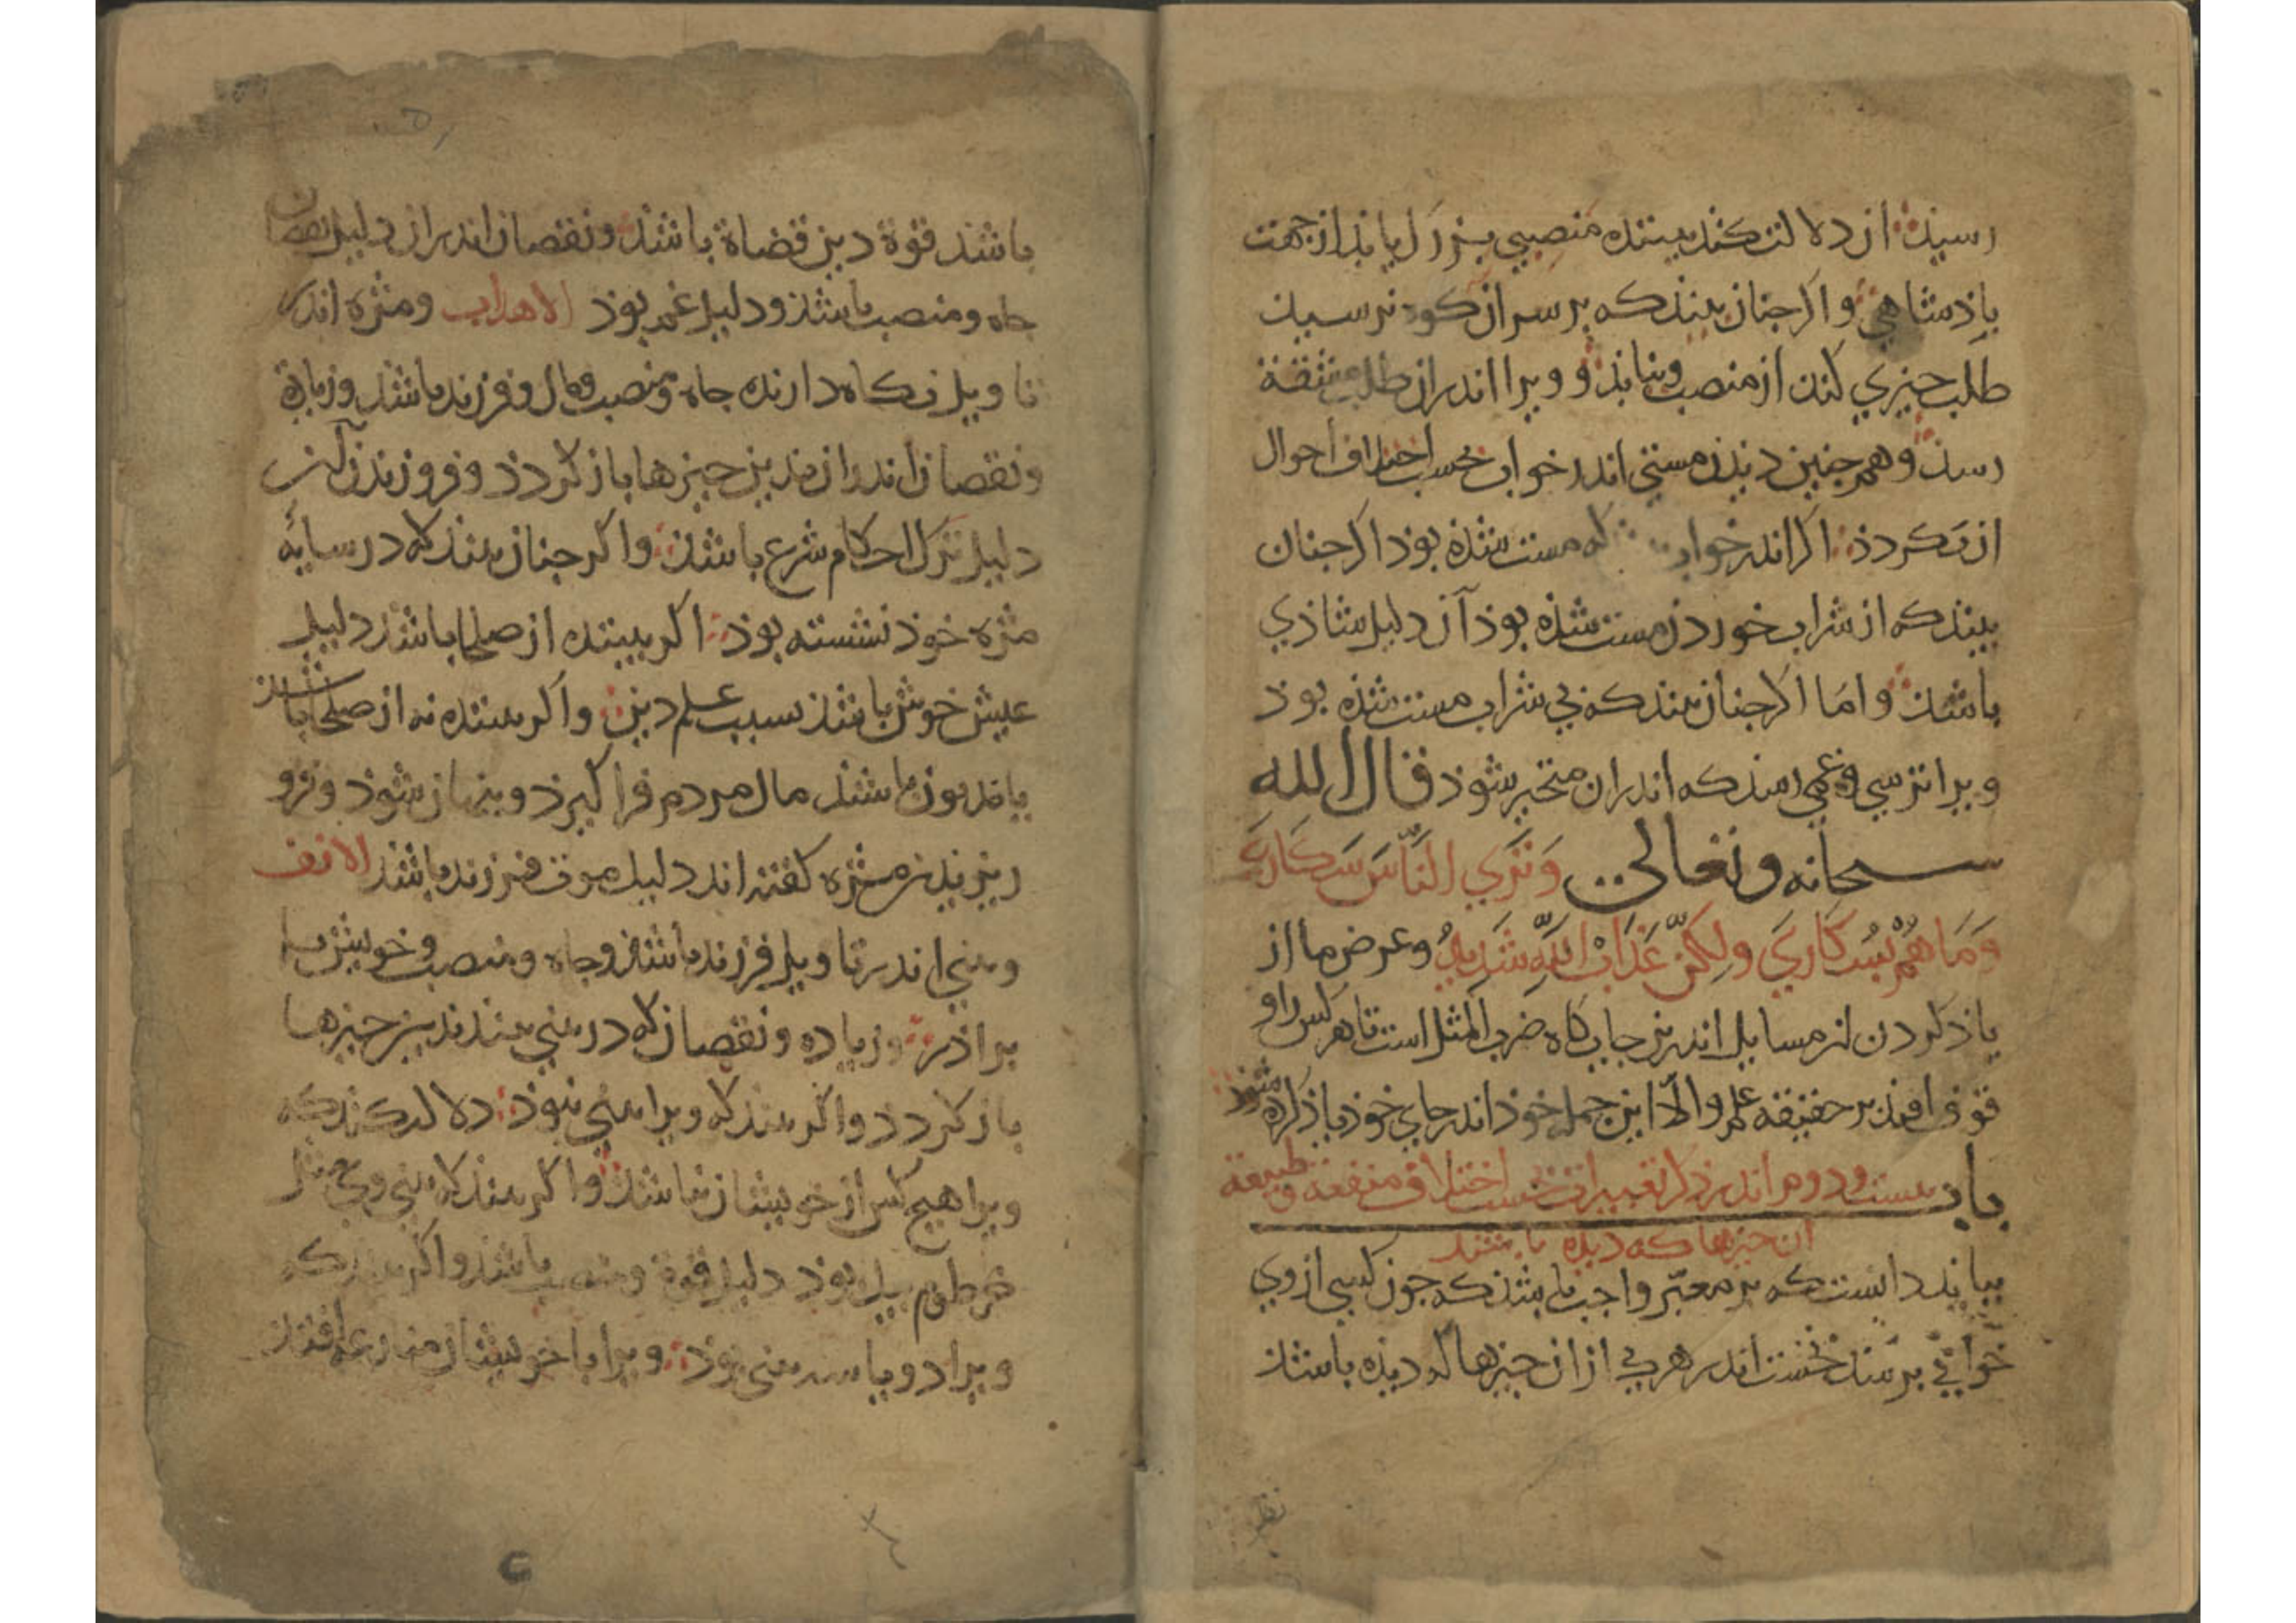 رسیذ از دلالت کند بیننده منصبی بزرگ یابذ از جهت
باذشاهی واکر جنان بیند که بر سر ان کوه نرسیذ
طلب جیزی کند از منصب و نیابذ و ویرا اندران طلب مشقة
رسذ وهم جنین دیذن مستی اندر خواب بحسب اختلاف احوال
از بکردذ اکر اندر خواب که مست شذه بوذ اکر جنان
بیند که از شراب خوردن مست شذه بوذ آن دلیل شاذی
باشذ واما اکر جنان بیند که بی شراب مست شذه بوذ
ویرا ترسی وغمی رسد که اندران متحیر شوذ قال الله
سبحانه وتعالی وَتَرَی النَّاسَ سُکَارَی
وَمَا هُمْ بِسُکَارَی وَلکِنَّ عَذَابَ اللَّهِ شَدِیدٌ وغرض ما از
یاذ کردن این مسایل اندرین جایکاه ضرب المثل است تا هر کس را و
قوف افتذ بر حقیقه علم والا این جمله خوذ اندر جای خوذ یاذ کرده شوذ
باب بیست ودوم اندر ذکر تعبیرات بحسب اختلاف منفعة وطبیعة
ان جیزها که دیذه باشند
ببایذ دانست که بر معبّر واجب باشذ که جون کسی از وی
خوابی برسذ نخست اندر هر یکی از ان جیزها که دیذه باشذ
باشند قوة دین قضاة باشذ ونقصان اندران دلیل نقصان
جاه ومنصب باشذ ودلیل غم بوذ الاهداب ومژه اندر
تاویل نکاه دارنده جاه ومنصب ومال وفرزند باشذ وزیادة
ونقصان اندران بدین جیزها باز کردذ وفرو ریزیدن آن
دلیل ترک احکام شرع باشذ واکر جنان بیند که در سایهٔ
مژه خوذ نشسته بوذ اکر بیننده از صلحا باشذ دلیل
عیش خوش باشذ بسبب علم دین واکر بیننده نه از صلحا باشذ
مال مردم فرا کیرذ وپنهان شوذ وفرو
ریزیدن مژه کفته اند دلیل موت فرزند باشذ الانف
وبینی اندر تاویل فرزند باشذ وجاه ومنصب وخویش یا
براذر وزیاده ونقصان که در بینی بیند بدین جیزها
باز کردذ واکر بیند که ویرا بینی نبوذ دلالت کند که
ویرا هیج کس از خویشان نباشذ واکر بیند که بینی وی مثل
خرطوم پیل بوذ دلیل قوة ومنصب باشذ واکر بیند که
ویرا دو یا سه بینی بوذ ویرا با خویشان منازعه افتذ